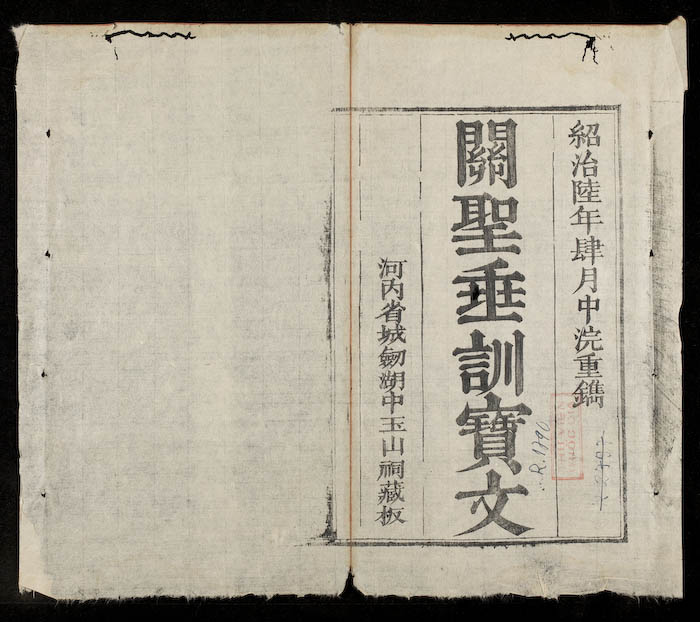 紹治陸年肆月中浣重鐫
關聖垂訓寶文
河内省城劒湖中玉山祠藏板
R.1790